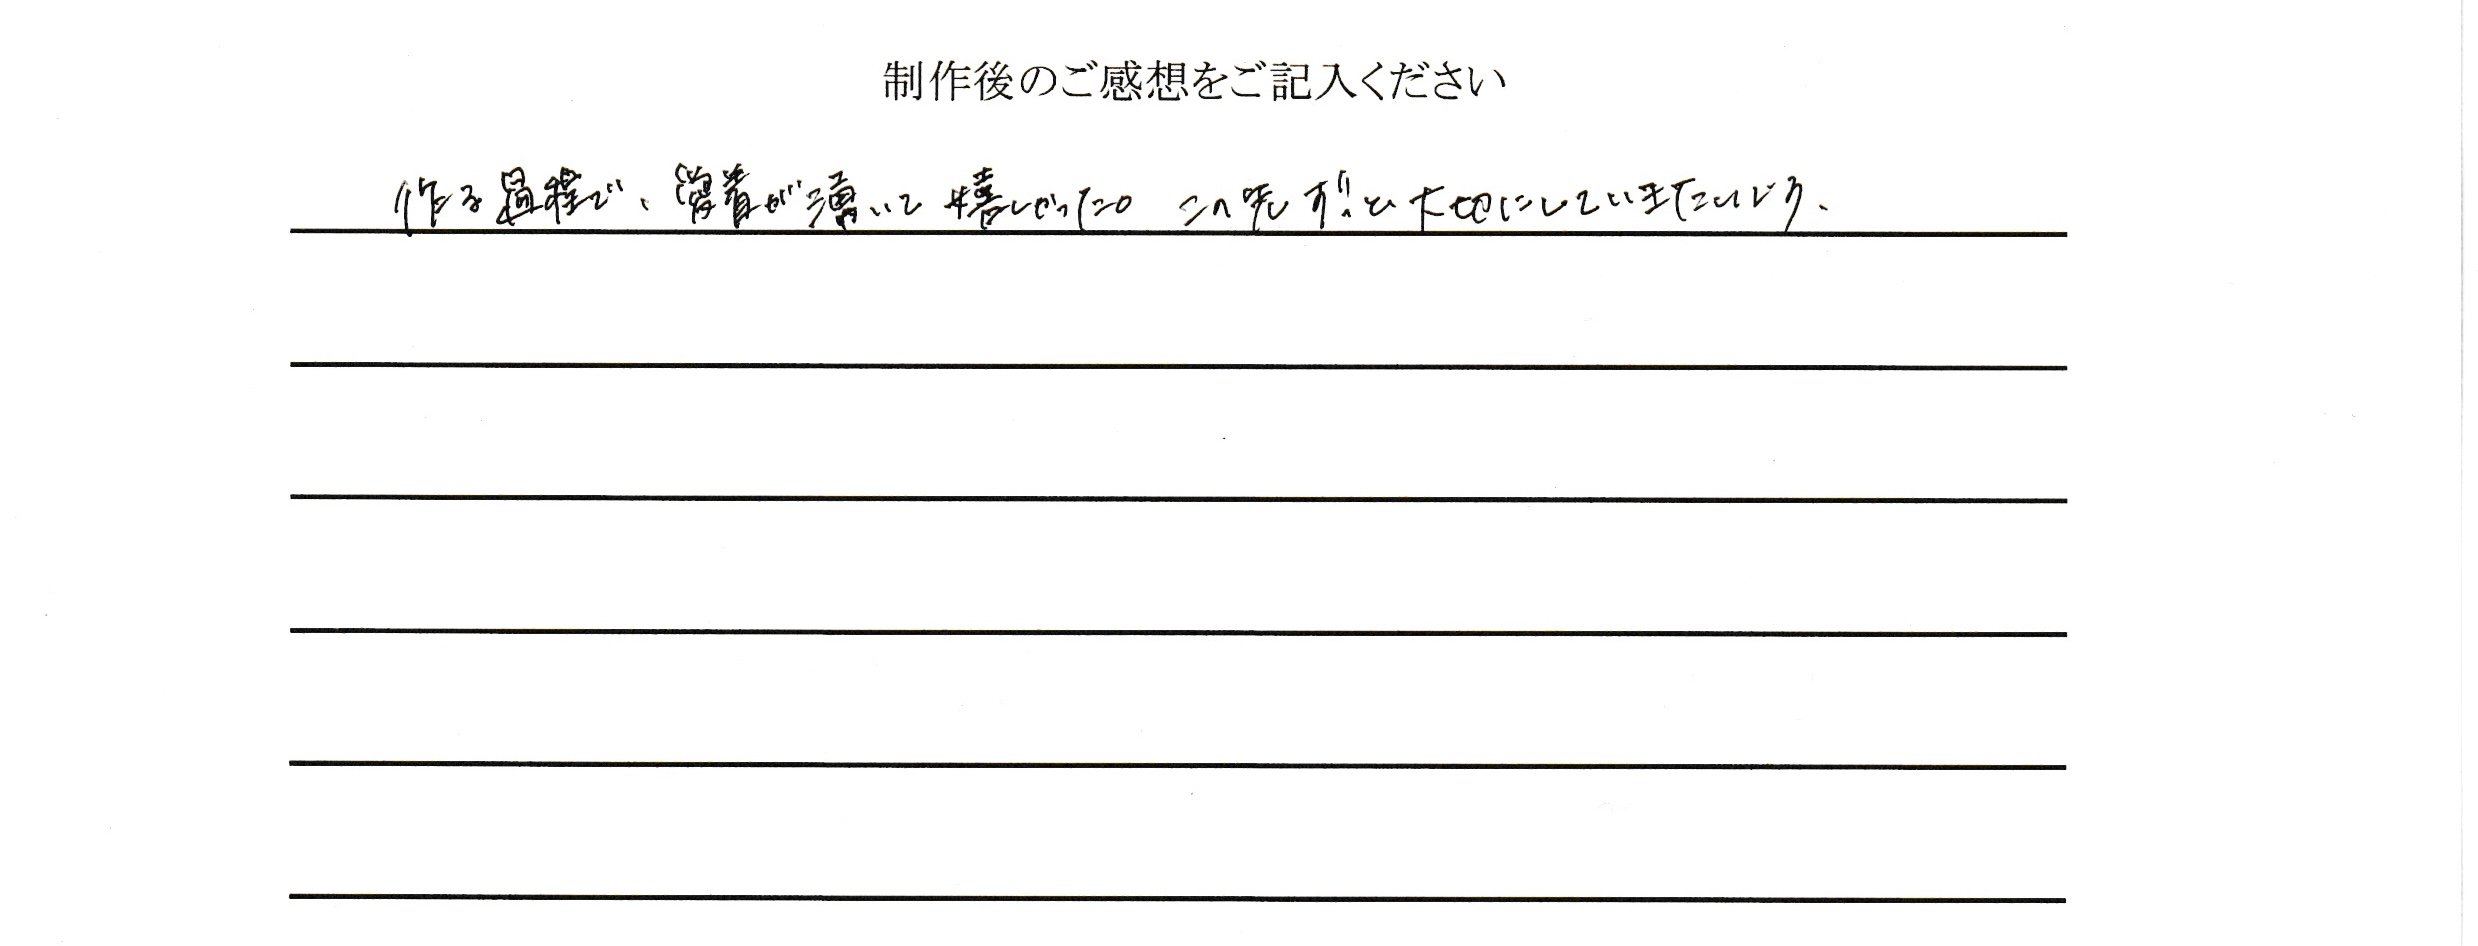 制作後のご感想をご記入ください
作る過程で、愛着が湧いて嬉しかった。この先ずっと大切にしていきたいです。